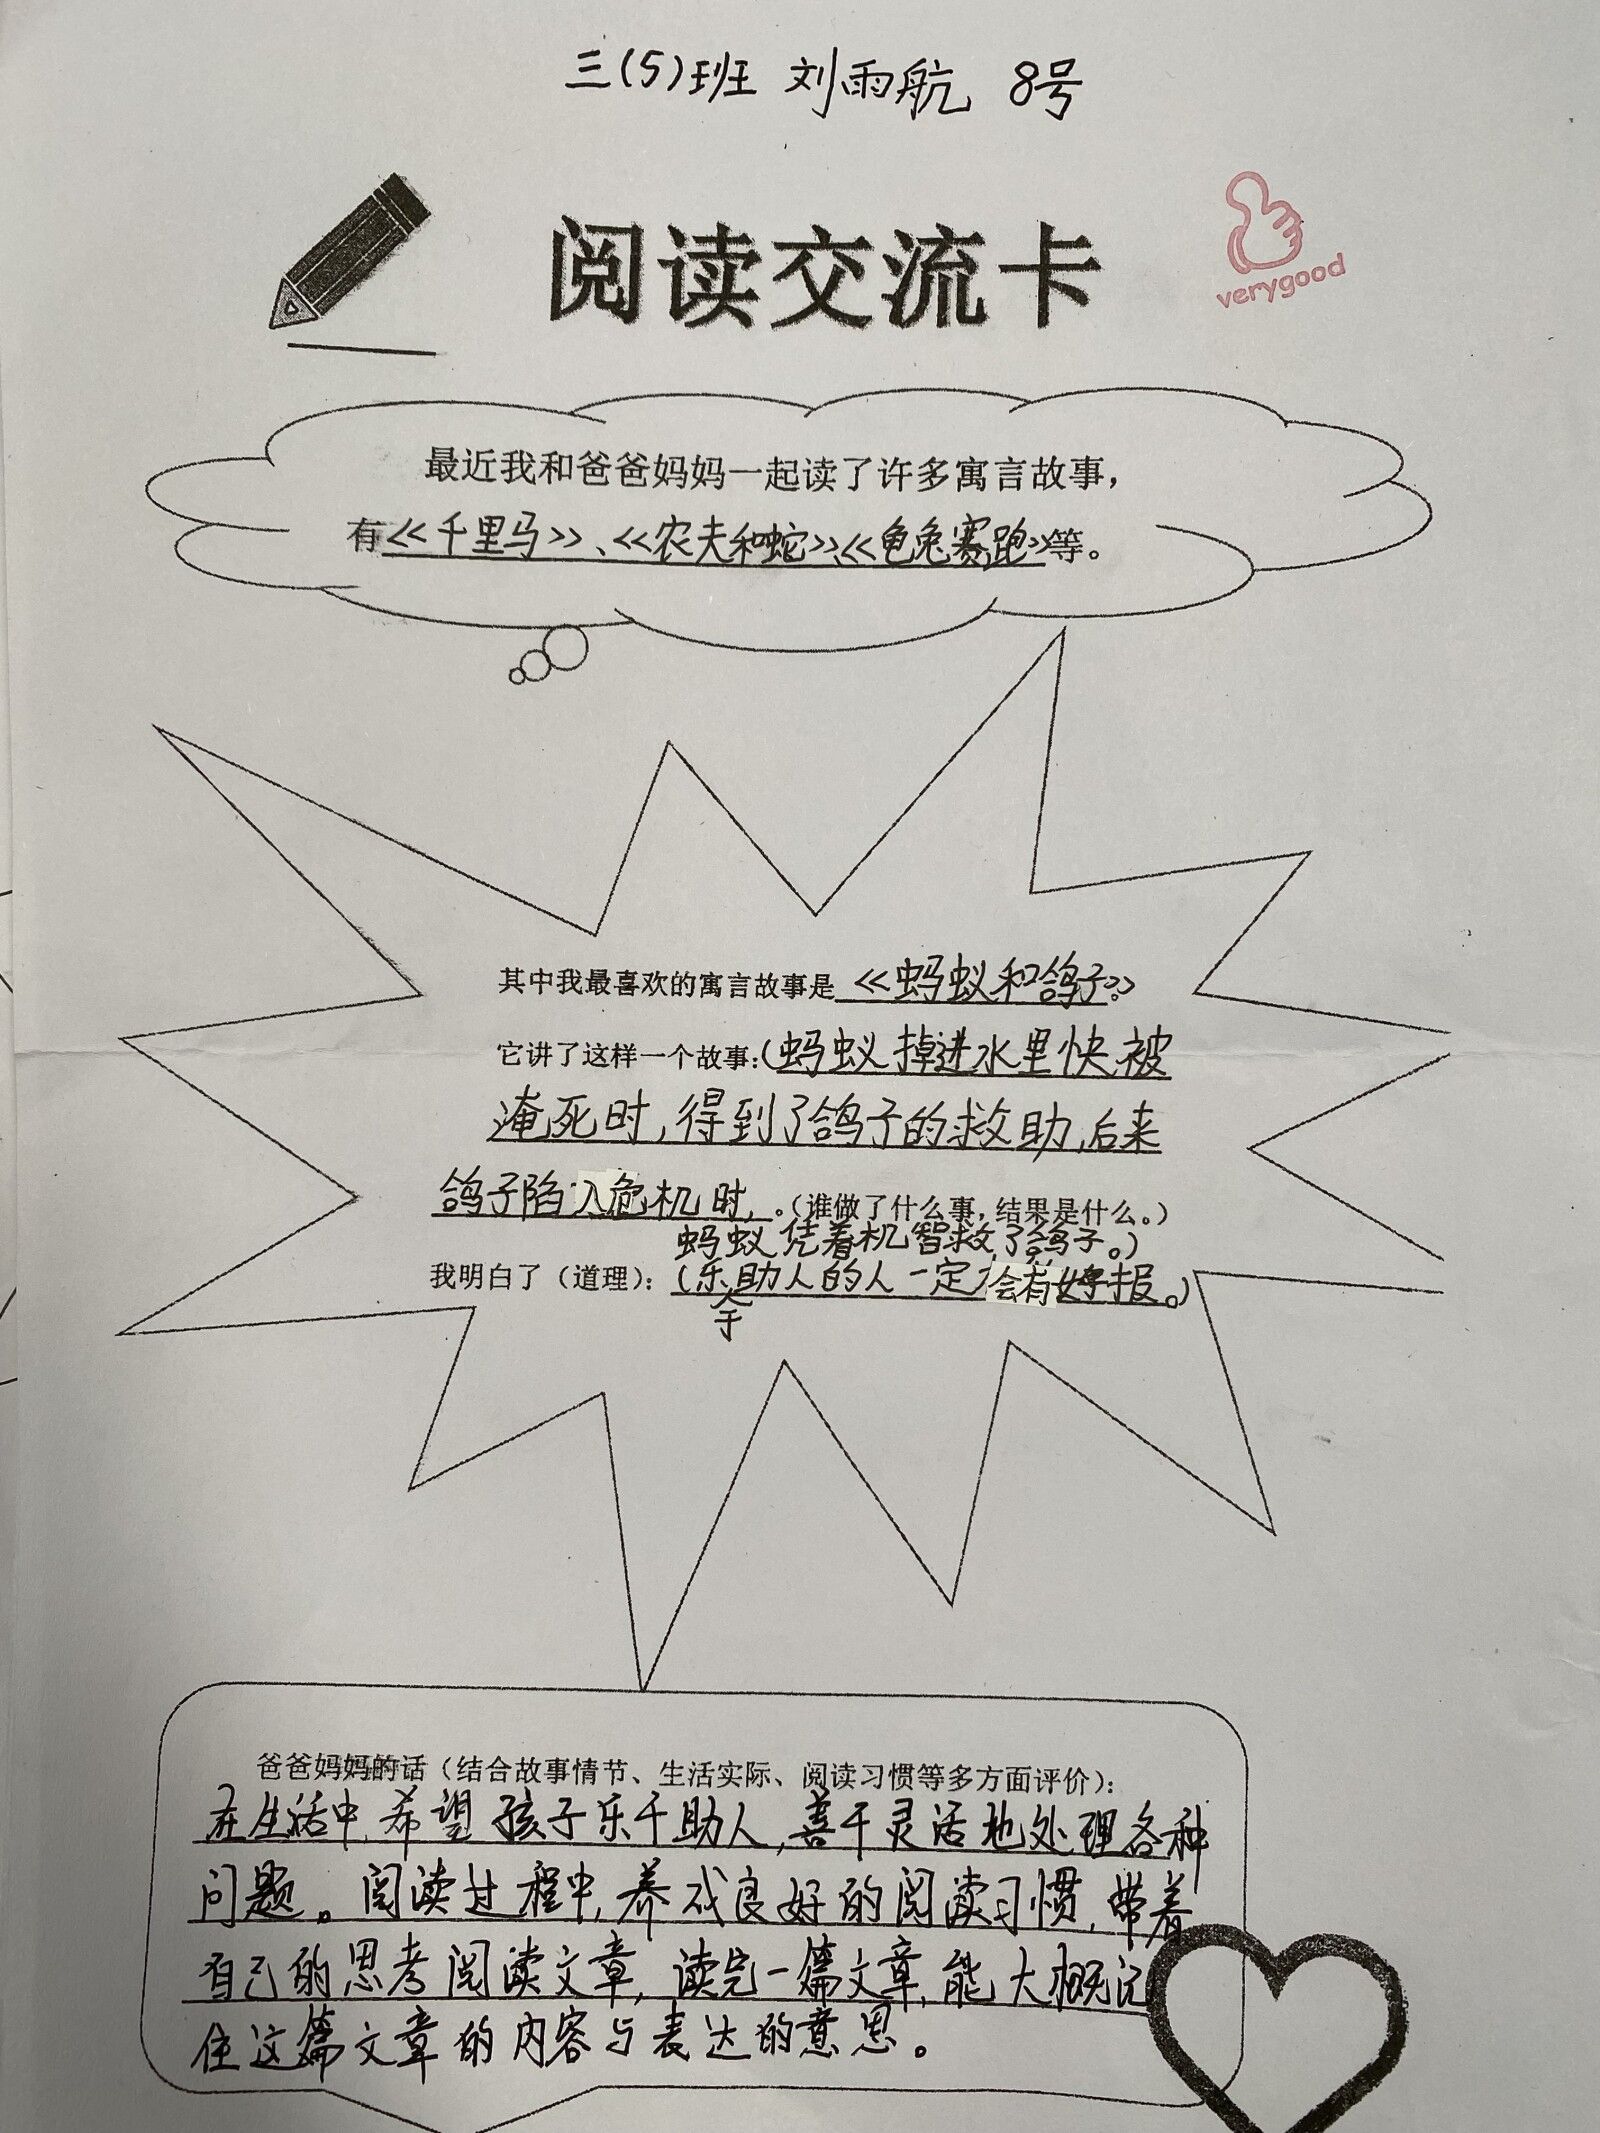 三(5)班 刘雨航 8号
阅读交流卡
verygood
最近我和爸爸妈妈一起读了许多寓言故事，
有《千里马》、《农夫和蛇》、《龟兔赛跑》等。
其中我最喜欢的寓言故事是《蚂蚁和鸽子》。
它讲了这样一个故事：(蚂蚁掉进水里快被
淹死时，得到了鸽子的救助，后来
鸽子陷入危机时，。(谁做了什么事，结果是什么。)
蚂蚁凭着机智救了鸽子。)
我明白了（道理）：(乐助人的人一定会有好报。)
于
爸爸妈妈的话（结合故事情节、生活实际、阅读习惯等多方面评价）：
在生活中，希望孩子乐于助人，善于灵活地处理各种
问题。阅读过程中，养成良好的阅读习惯，带着
自己的思考阅读文章，读完一篇文章，能大概记
住这篇文章的内容与表达的意思。